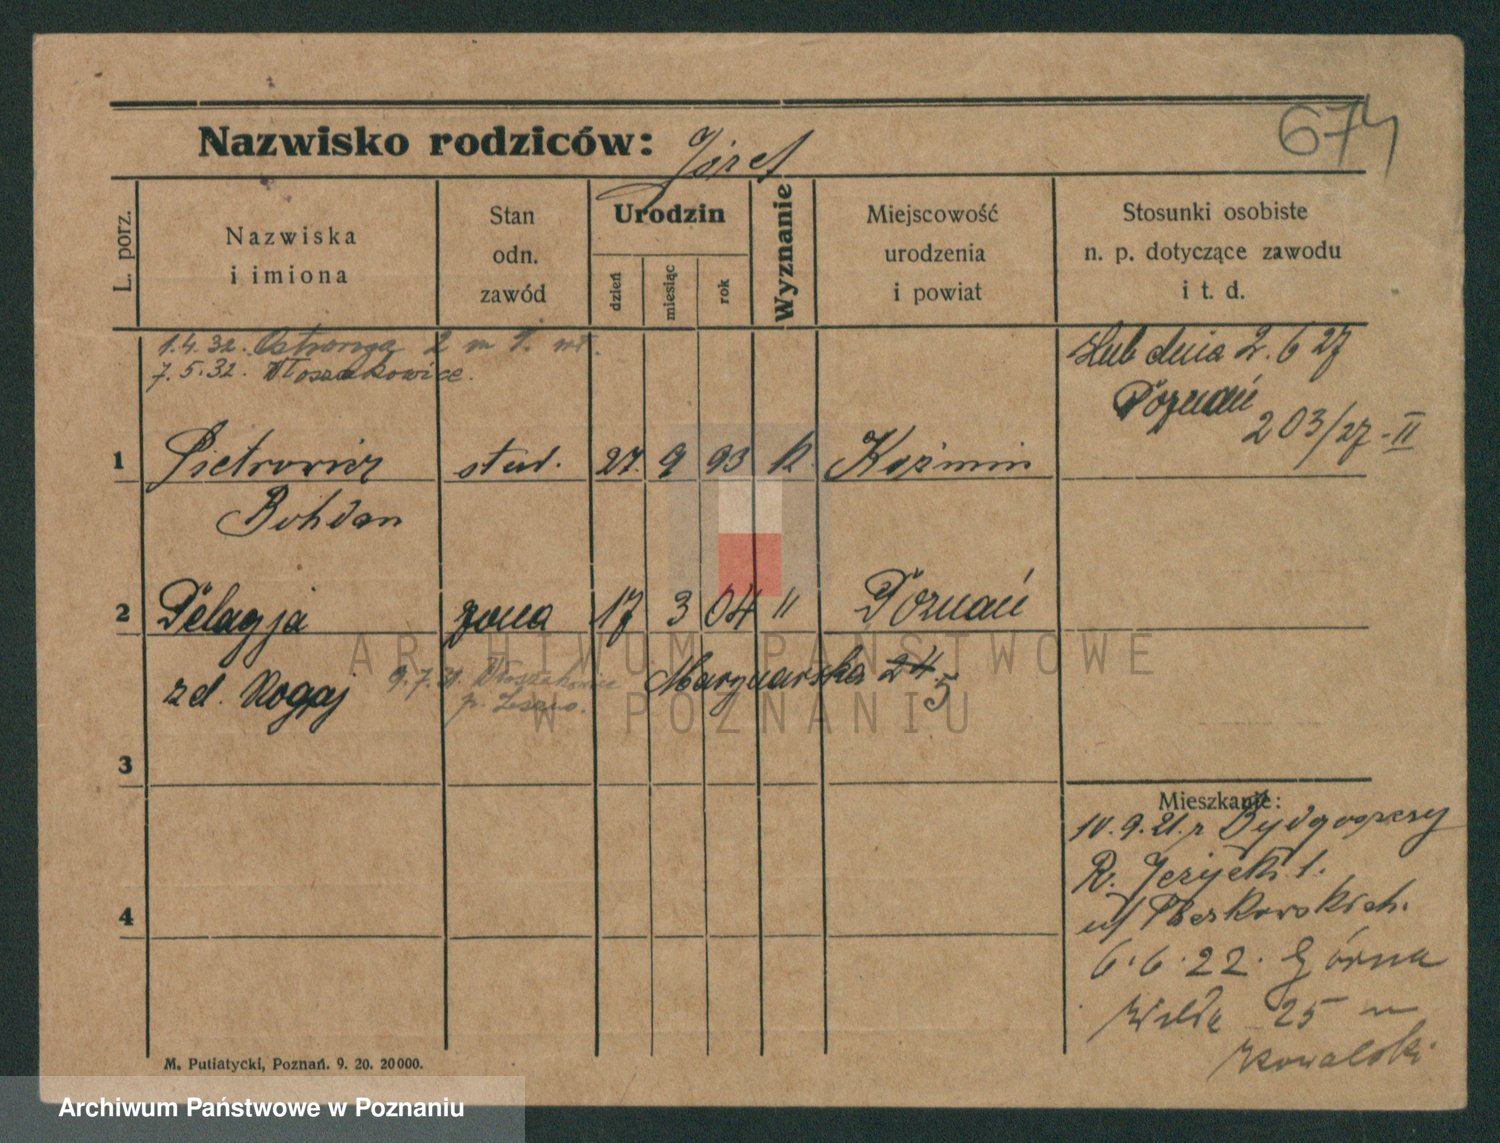 674
Nazwisko rodziców: Józef
L. porz.
Nazwiska
i imiona
Stan
odn.
zawód
Urodzin
dzień
miesiąc
rok
Wyznanie
Miejscowość
urodzenia
i powiat
Stosunki osobiste
n. p. dotyczące zawodu
i t. d.
1.4.32. Ostroroga 2 m 9.
7.5.32. Włoszakowice.
Ślub dnia 2.6 27
Poznań
203/27-II
1 Pietrowicz stud. 27. 9 93 k. Koźmin
Bohdan
2 Pelagja żona 17 3 04 " Poznań
zd. Rogaj
9.7.31. Włoszakowice
p. Leszno.
Marynarska 24
5
3
4
Mieszkanie:
10.9.21. z Bydgoszczy
R. Jeżycki 1.
6.6.22. Górna
Wilda 25
Kowalski
M. Putiatycki, Poznań. 9. 20. 20000.
ARCHIWUM PAŃSTWOWE
W POZNANIU
Archiwum Państwowe w Poznaniu